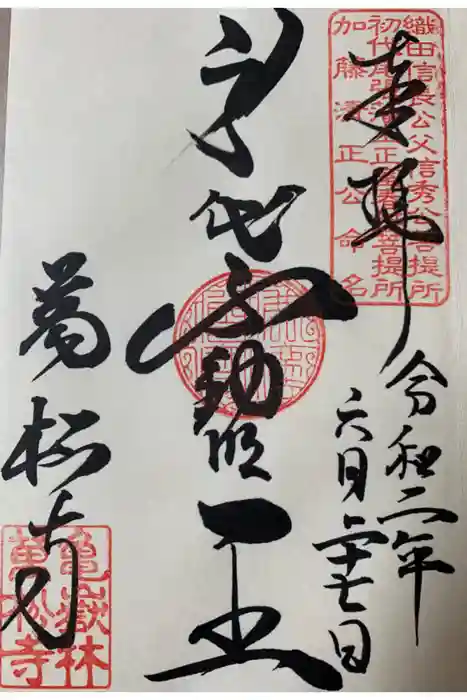 奉拝
織田信長公父信秀公菩提所
初代尾張藩主正室春姫菩提所
加藤清正公命名
令和二年
六月二十七日
身代不動明王
萬松寺
亀嶽林
萬松寺